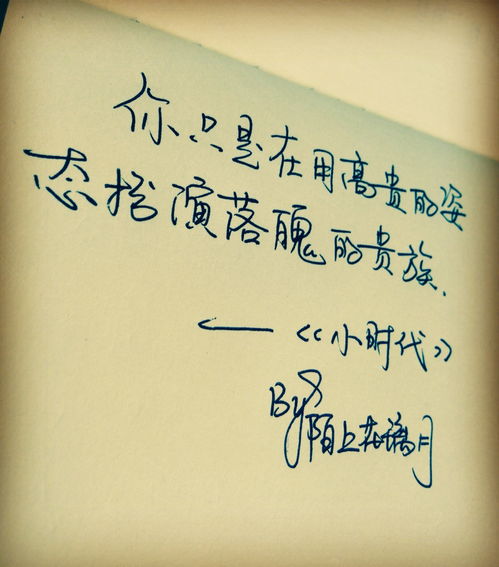 你只是在用高贵的姿
态扮演落魄的贵族.
——《小时代》
By 陌上花 月